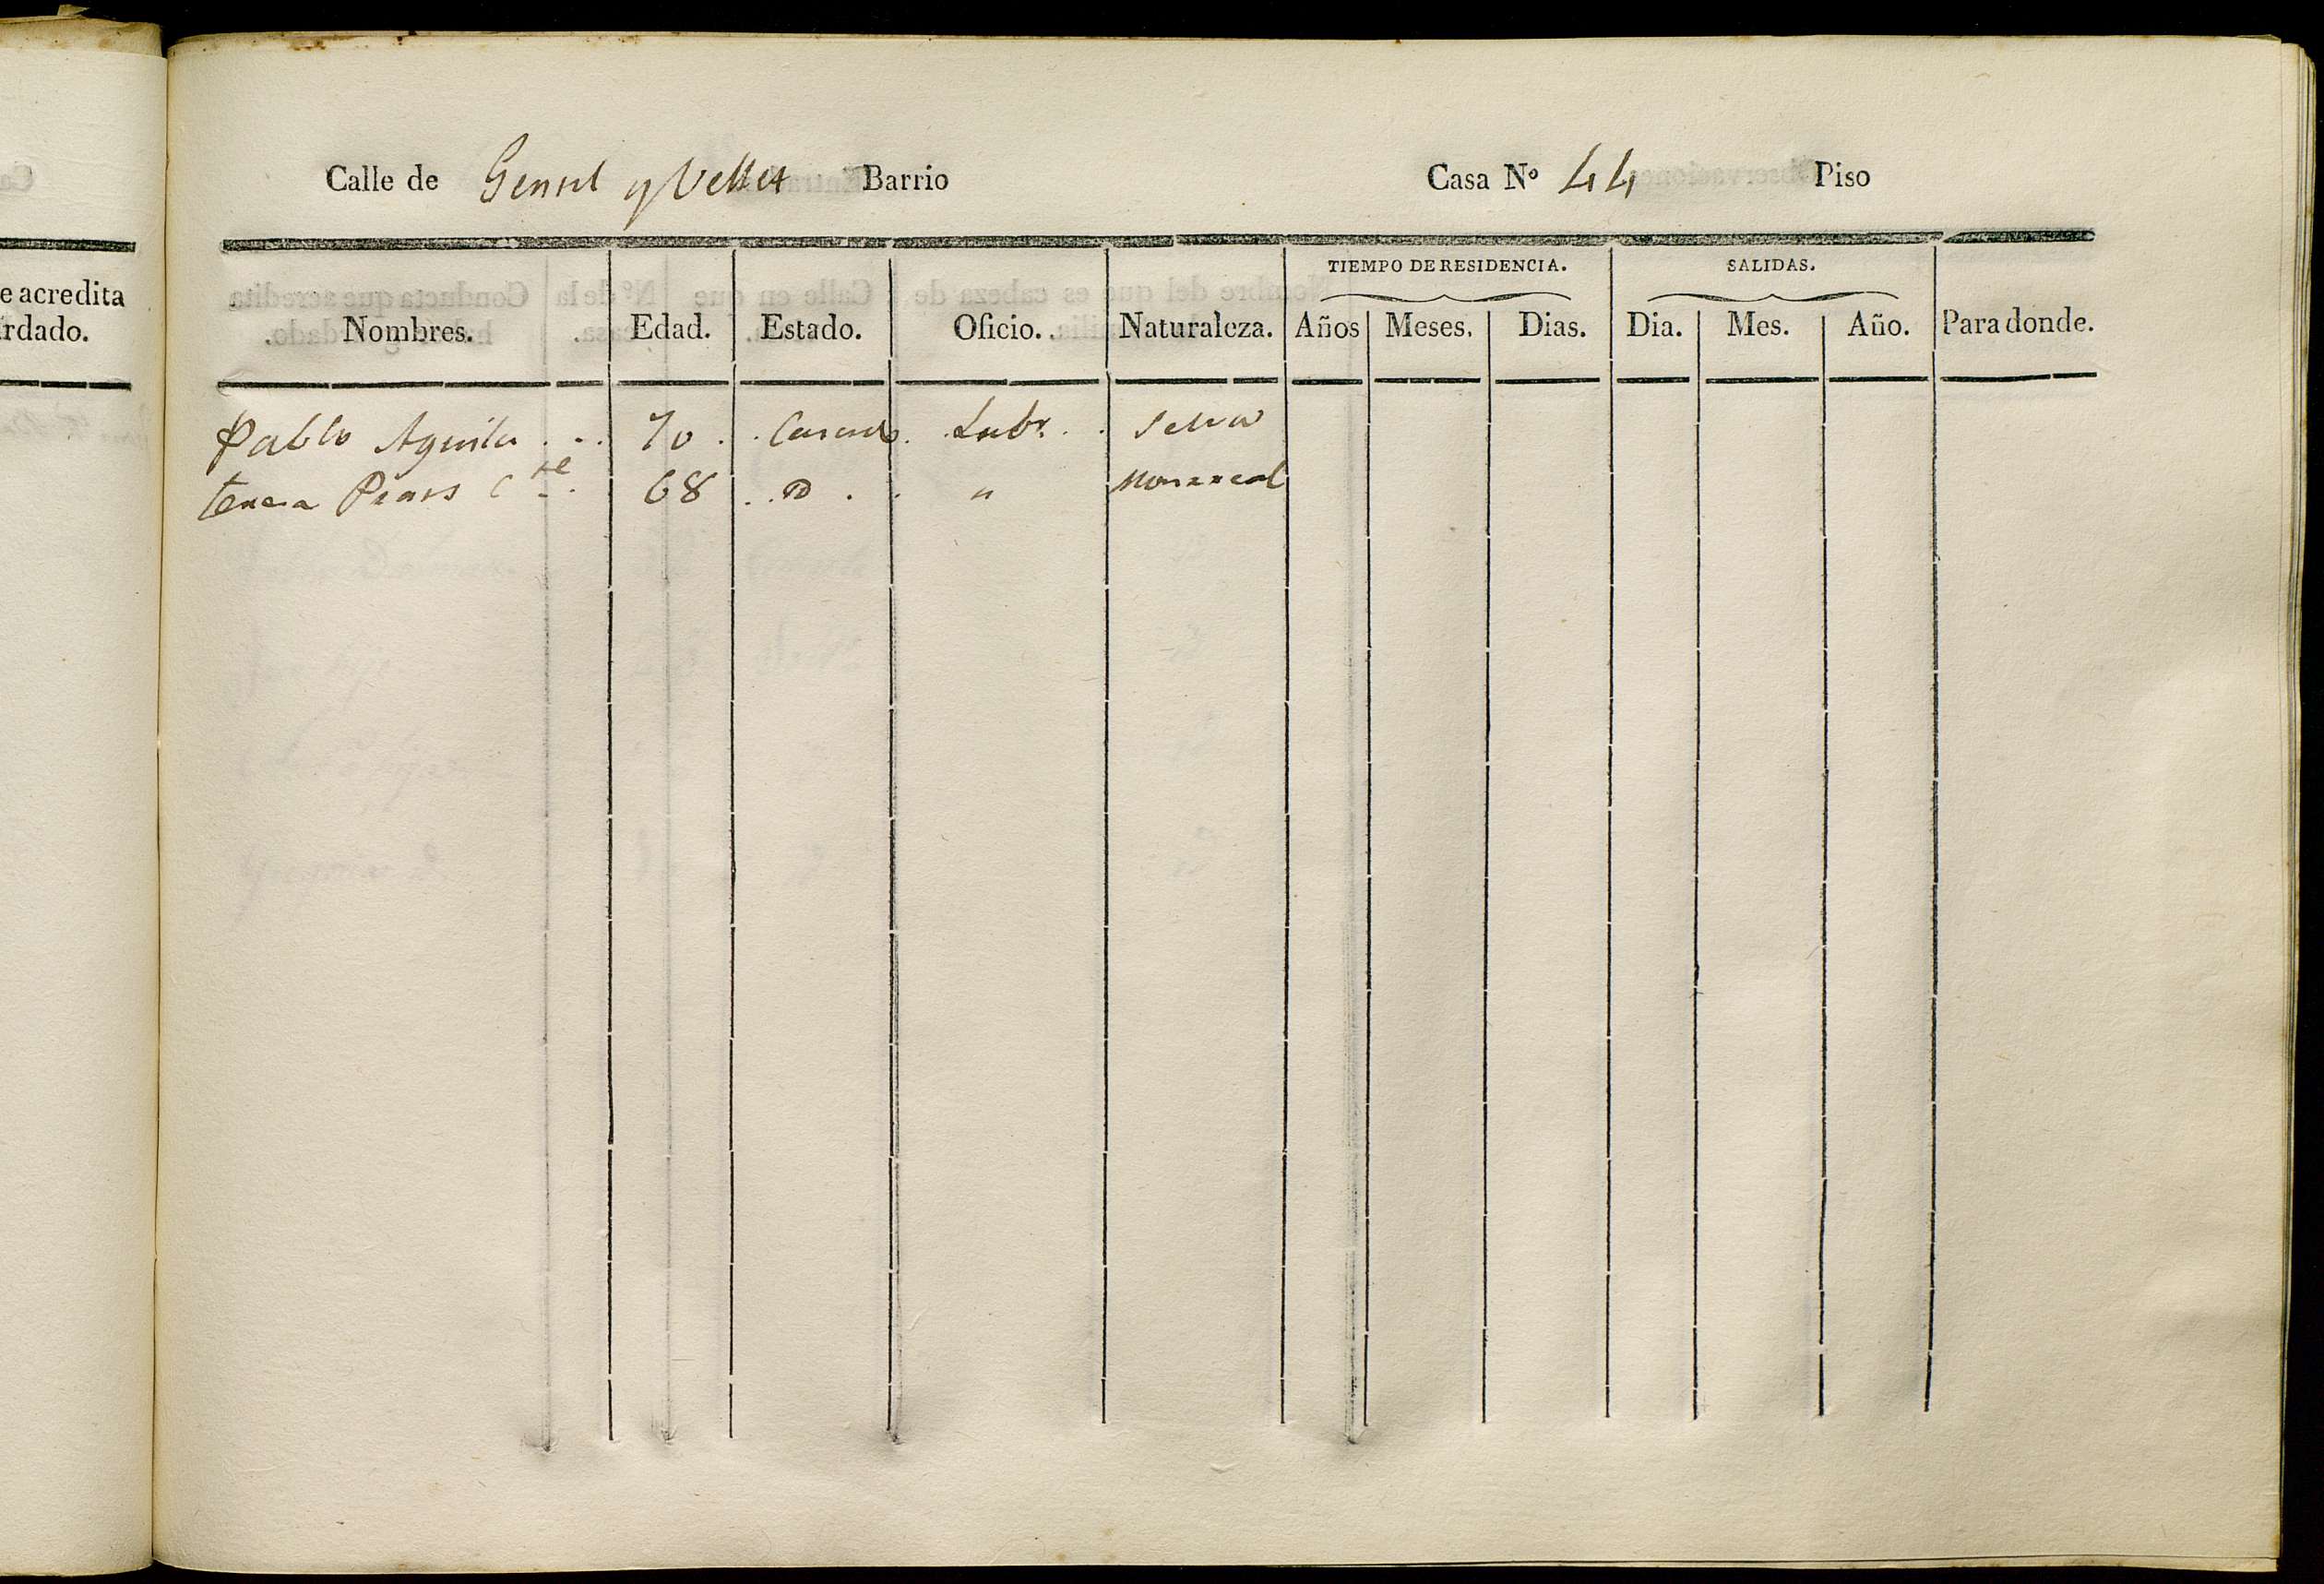 Calle de Gensel y Vellet Barrio Casa Nº 44 Piso
TIEMPO DE RESIDENCIA. SALIDAS.
Nombres. Edad. Estado. Oficio. Naturaleza. Años Meses. Dias. Dia. Mes. Año. Para donde.
Pablo Aguila . . . 70 . . Casado . . Labr. . . Selva
teresa 68 . . D . . " Monreal
e acredita
rdado.